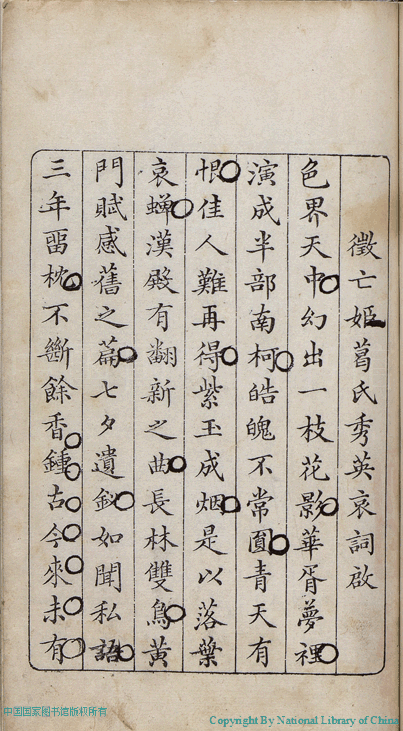 徵亡姬葛氏秀英哀詞啟
色界天中幻出一枝花影華胥夢裡
演成半部南柯皓魄不常圓青天有
恨佳人難再得紫玉成烟是以落葉
哀蟬漢殿有翻新之曲長林雙鳥黃
門賦感舊之篇七夕遺釵如聞私語
三年畱枕不斷餘香鍾古今來未有
中国国家图书馆版权所有
Copyright By National Library of China